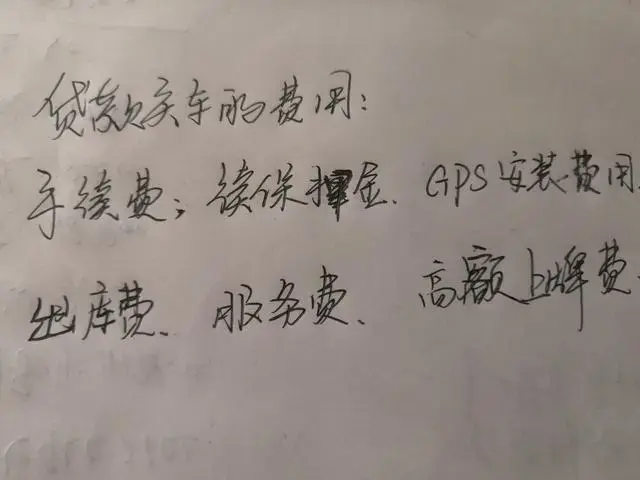 贷款买车的费用:
手续费; 续保押金、GPS安装费用
出库费、服务费、高额上牌费、